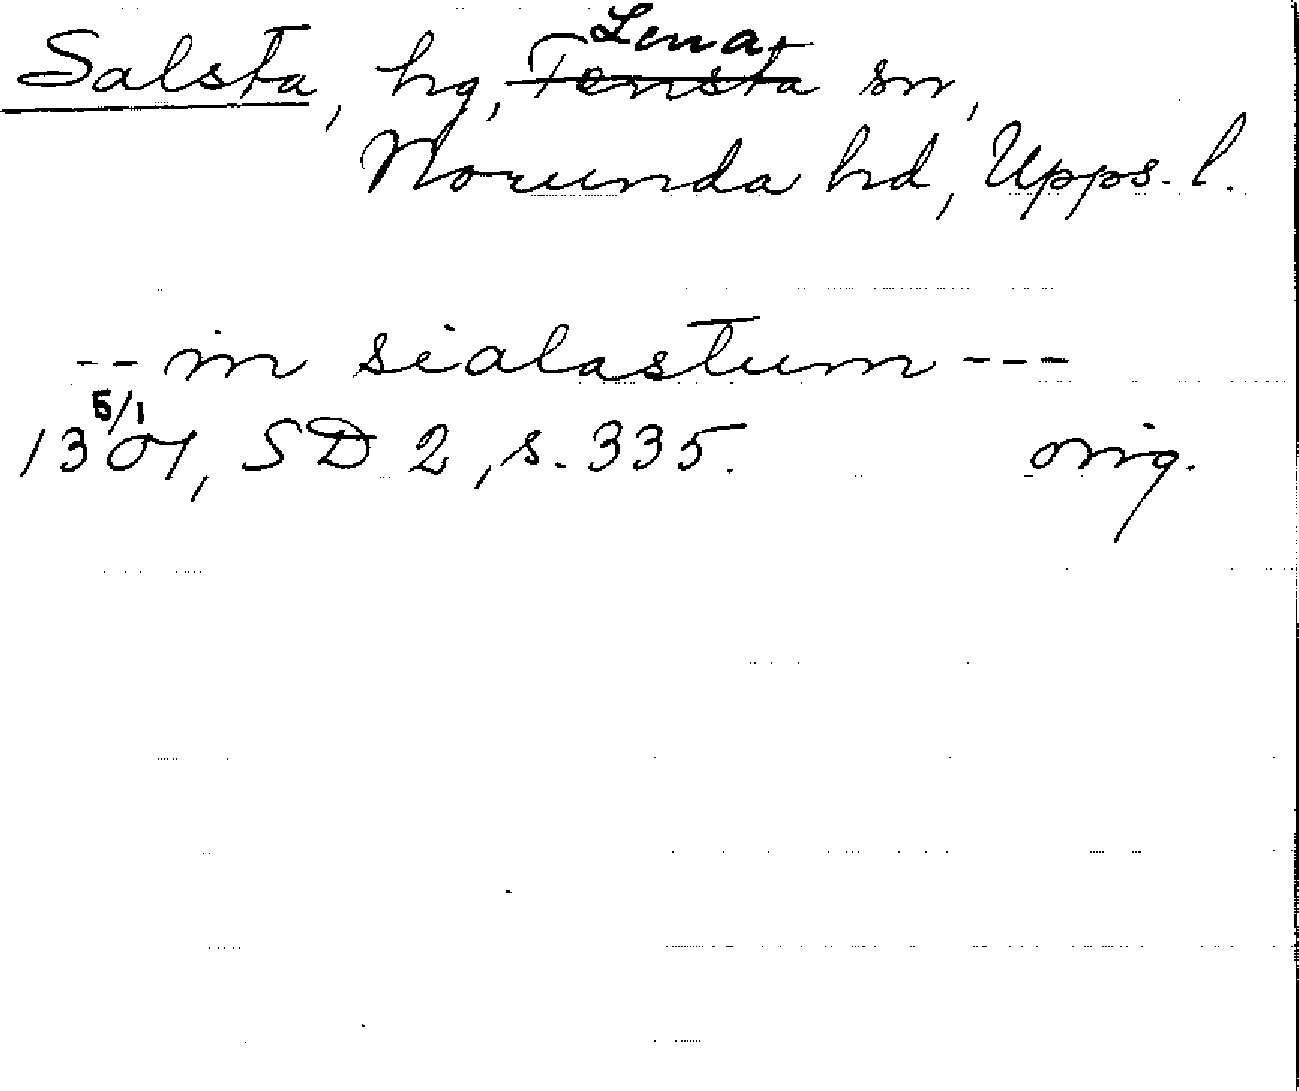 Salsta, hg, Tensta Lena sn,
Norunda hd, Upps. l.
-- in sialastum ---
5/1
1307, SD 2, s. 335. orig.